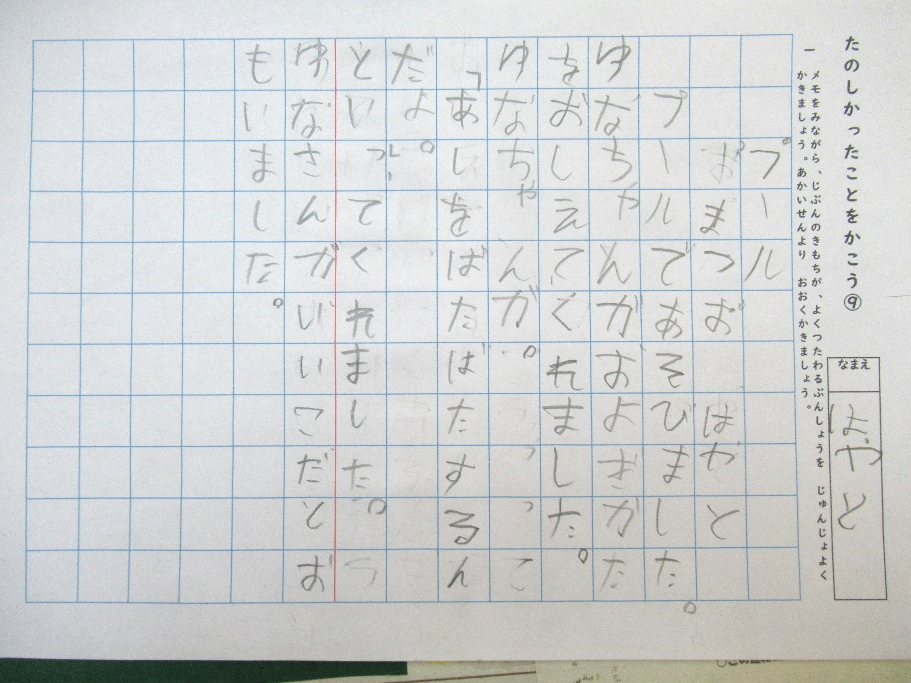 たのしかったことをかこう⑨
一 メモをみながら、じぶんのきもちが、よくつたわるぶんしょうを じゅんじょよく
かきましょう。あかいせんより おおくかきましょう。
なまえ
はやと
プール
おまつお はやと
プールであそびました。
ゆなちゃんがおよぎかた
をおしえてくれました。
ゆなちゃんが。
「あしをばたばたするん
だよ。」
といってくれました。
ゆなさんがいいこだとお
もいました。